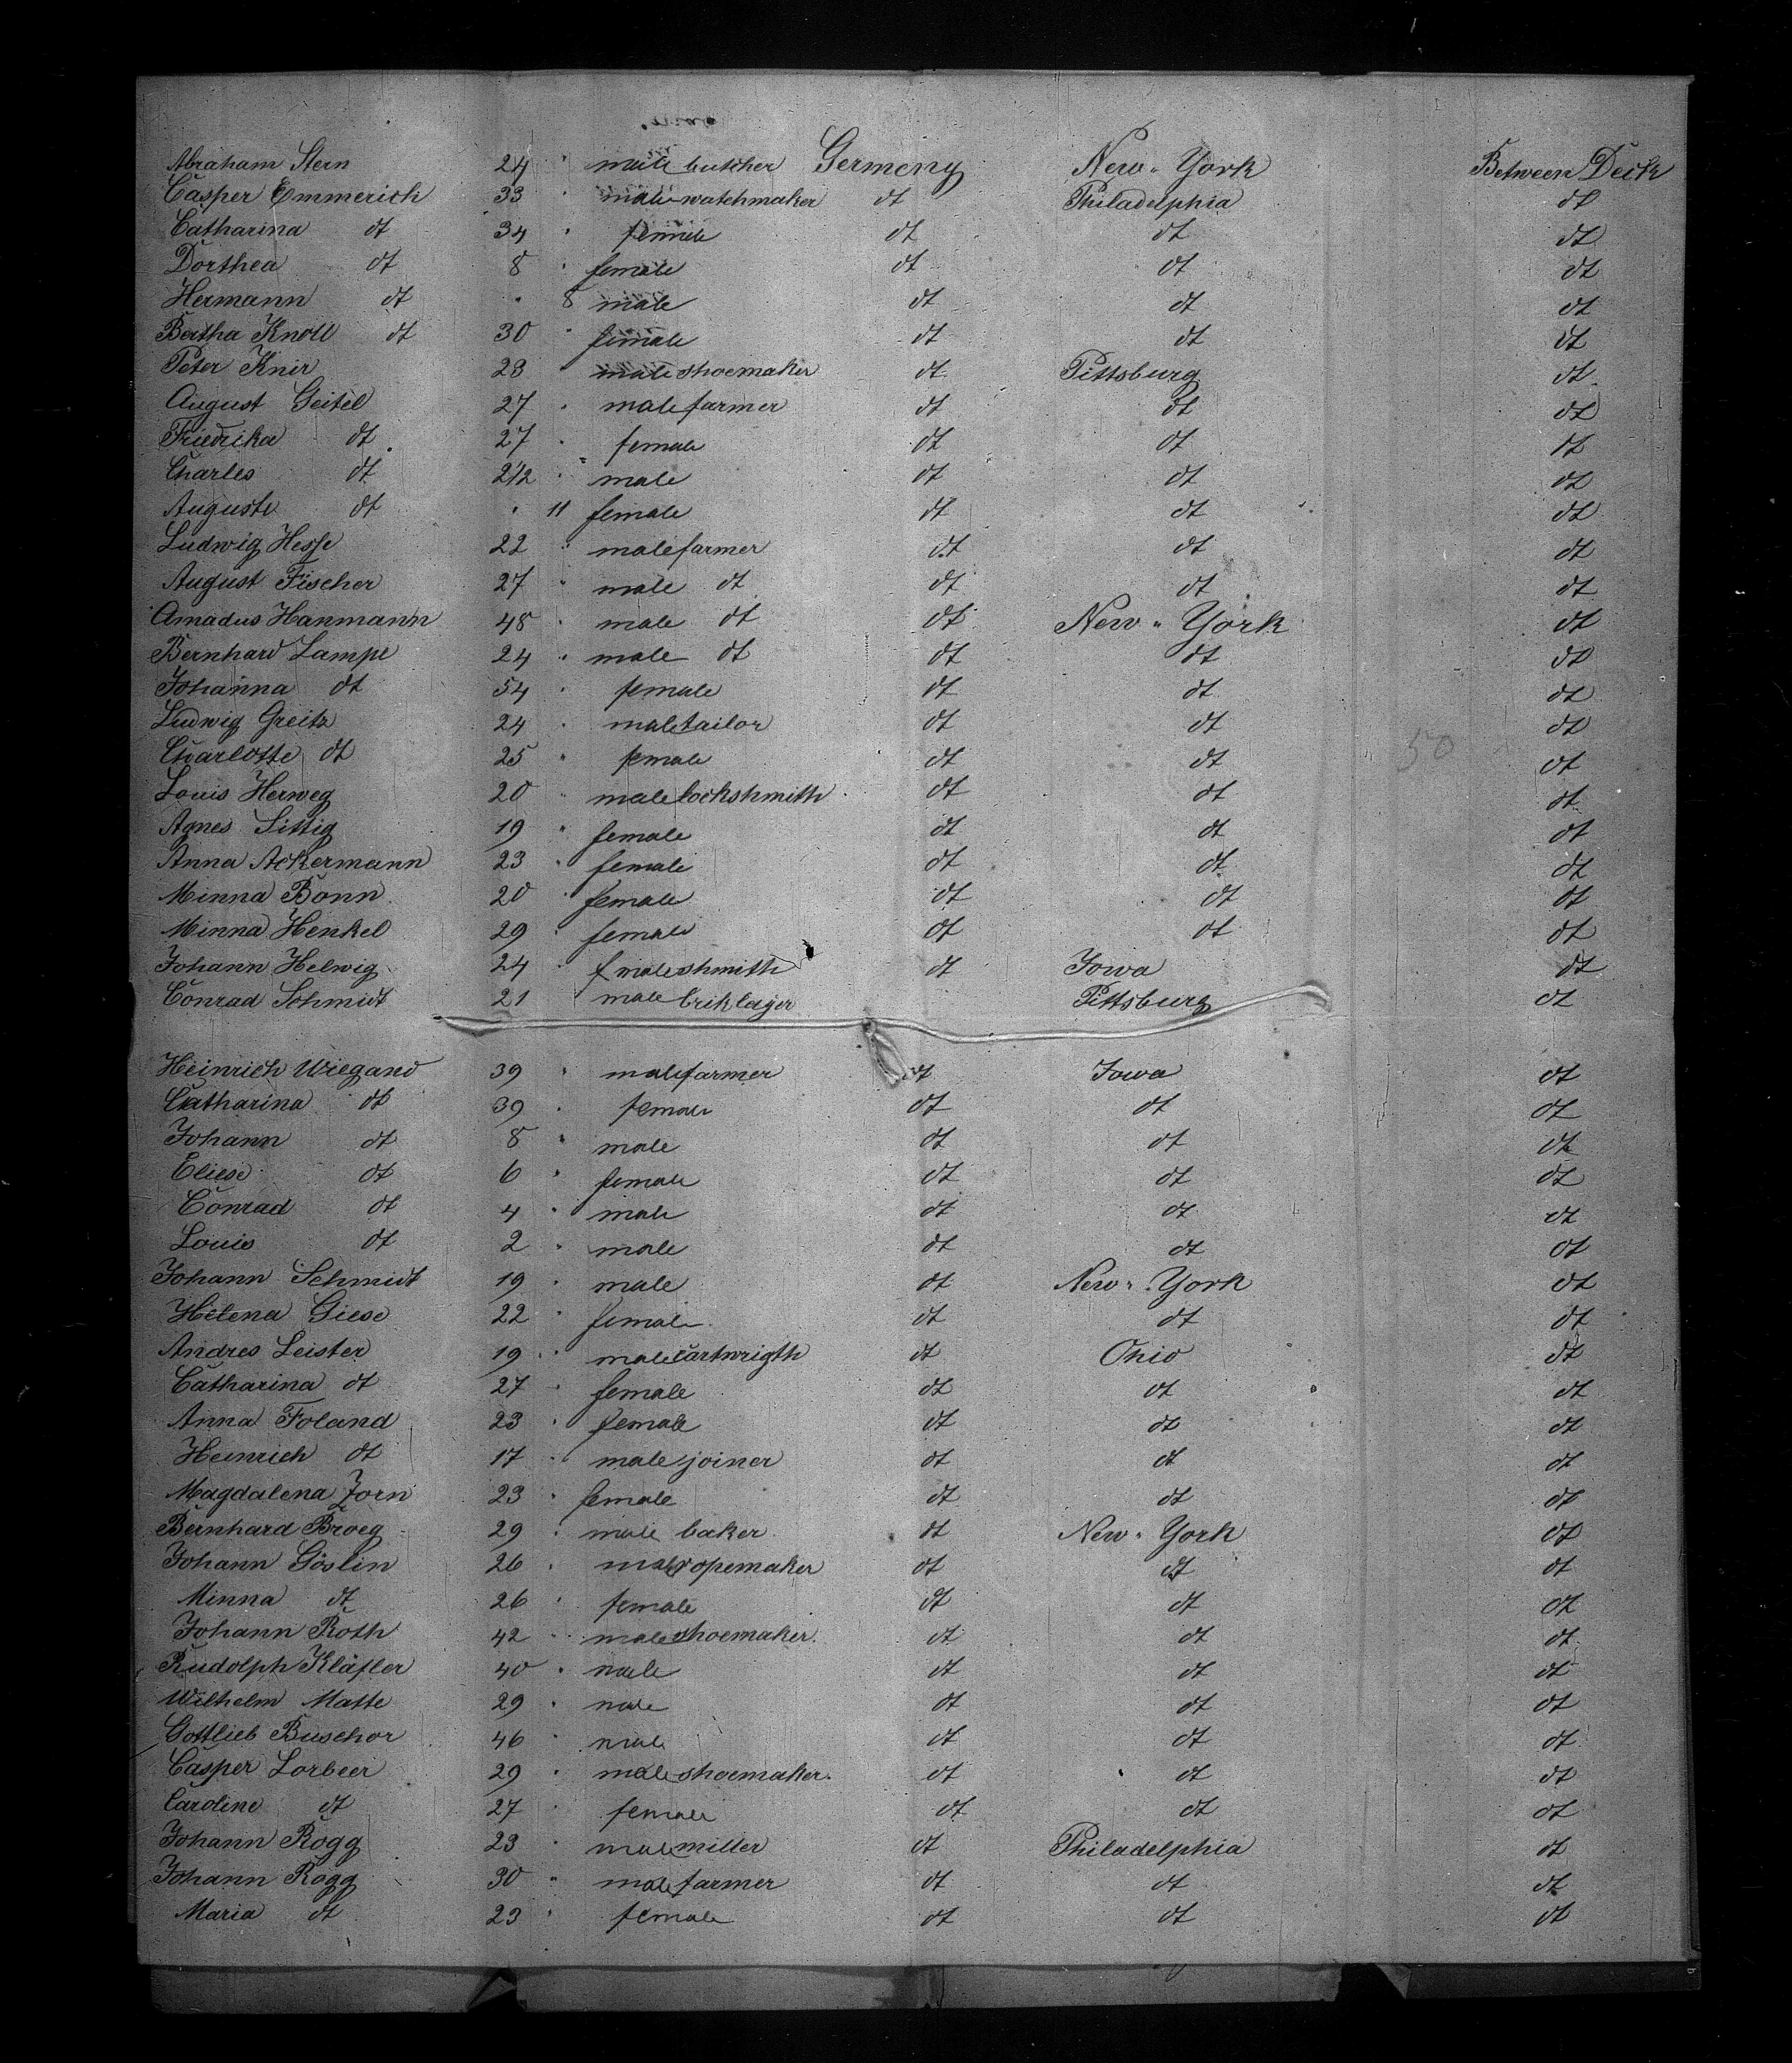 Abraham Stern 24 " male butcher Germeny New-York Between Deck
Casper Emmerich 33 " male watchmaker dt Philadelphia dt
Catharina dt 34 " female dt dt dt
Dorthea dt 8 " female dt dt dt
Hermann dt " 8 male dt dt dt
Bertha Knoll dt 30 " female dt dt dt
Peter Knir 28 male shoemaker dt Pittsburg dt
August Geitel 27 " male farmer dt dt dt
Friedrika dt 27 " female dt dt dt
Charles dt 2 1/2 " male dt dt dt
Auguste dt " 11 female dt dt dt
Ludwig Hesse 22 " male farmer dt dt dt
August Fischer 27 " male dt dt dt dt
Amadus Hanmann 48 " male dt dt New-York dt
Bernhard Lampe 24 " male dt dt dt dt
Johanna dt 54 " female dt dt dt
Ludwig Greitz 24 " male tailor dt dt dt
Charlotte dt 25 " female dt dt 50 dt
Louis Herweg 20 " male lockshmith dt dt dt
Agnes Sittig 19 " female dt dt dt
Anna Ackermann 23 " female dt dt dt
Minna Bonn 20 " female dt dt dt
Minna Henkel 29 " female dt dt dt
Johann Helwig 24 " male shmith dt Iowa dt
Conrad Schmidt 21 " male briklayer Pittsburg dt
Heinrich Wiegand 39 " male farmer dt Iowa dt
Catharina dt 39 " female dt dt dt
Johann dt 8 " male dt dt dt
Eliese dt 6 " female dt dt dt
Conrad dt 4 " male dt dt dt
Louis dt 2 " male dt dt dt
Johann Schmidt 19 " male dt New-York dt
Helena Giese 22 " female dt dt dt
Andres Leister 19 " male cartwrigth dt Ohio dt
Catharina dt 27 " female dt dt dt
Anna Foland 23 " female dt dt dt
Heinrich dt 17 " male joiner dt dt dt
Magdalena Zorn 23 " female dt dt dt
Bernhard Broeg 29 " male baker dt New-York dt
Johann Göslin 26 " male ropemaker dt dt dt
Minna dt 26 " female dt dt dt
Johann Roth 42 " male shoemaker dt dt dt
Rudolph Kläfler 40 " male dt dt dt
Wilhelm Matte 29 " male dt dt dt
Gottlieb Buschor 46 " male dt dt dt
Casper Lorbeer 29 " male shoemaker dt dt dt
Caroline dt 27 " female dt dt dt
Johann Rogg 23 " male miller dt Philadelphia dt
Johann Rogg 30 " male farmer dt dt dt
Maria dt 23 " female dt dt dt